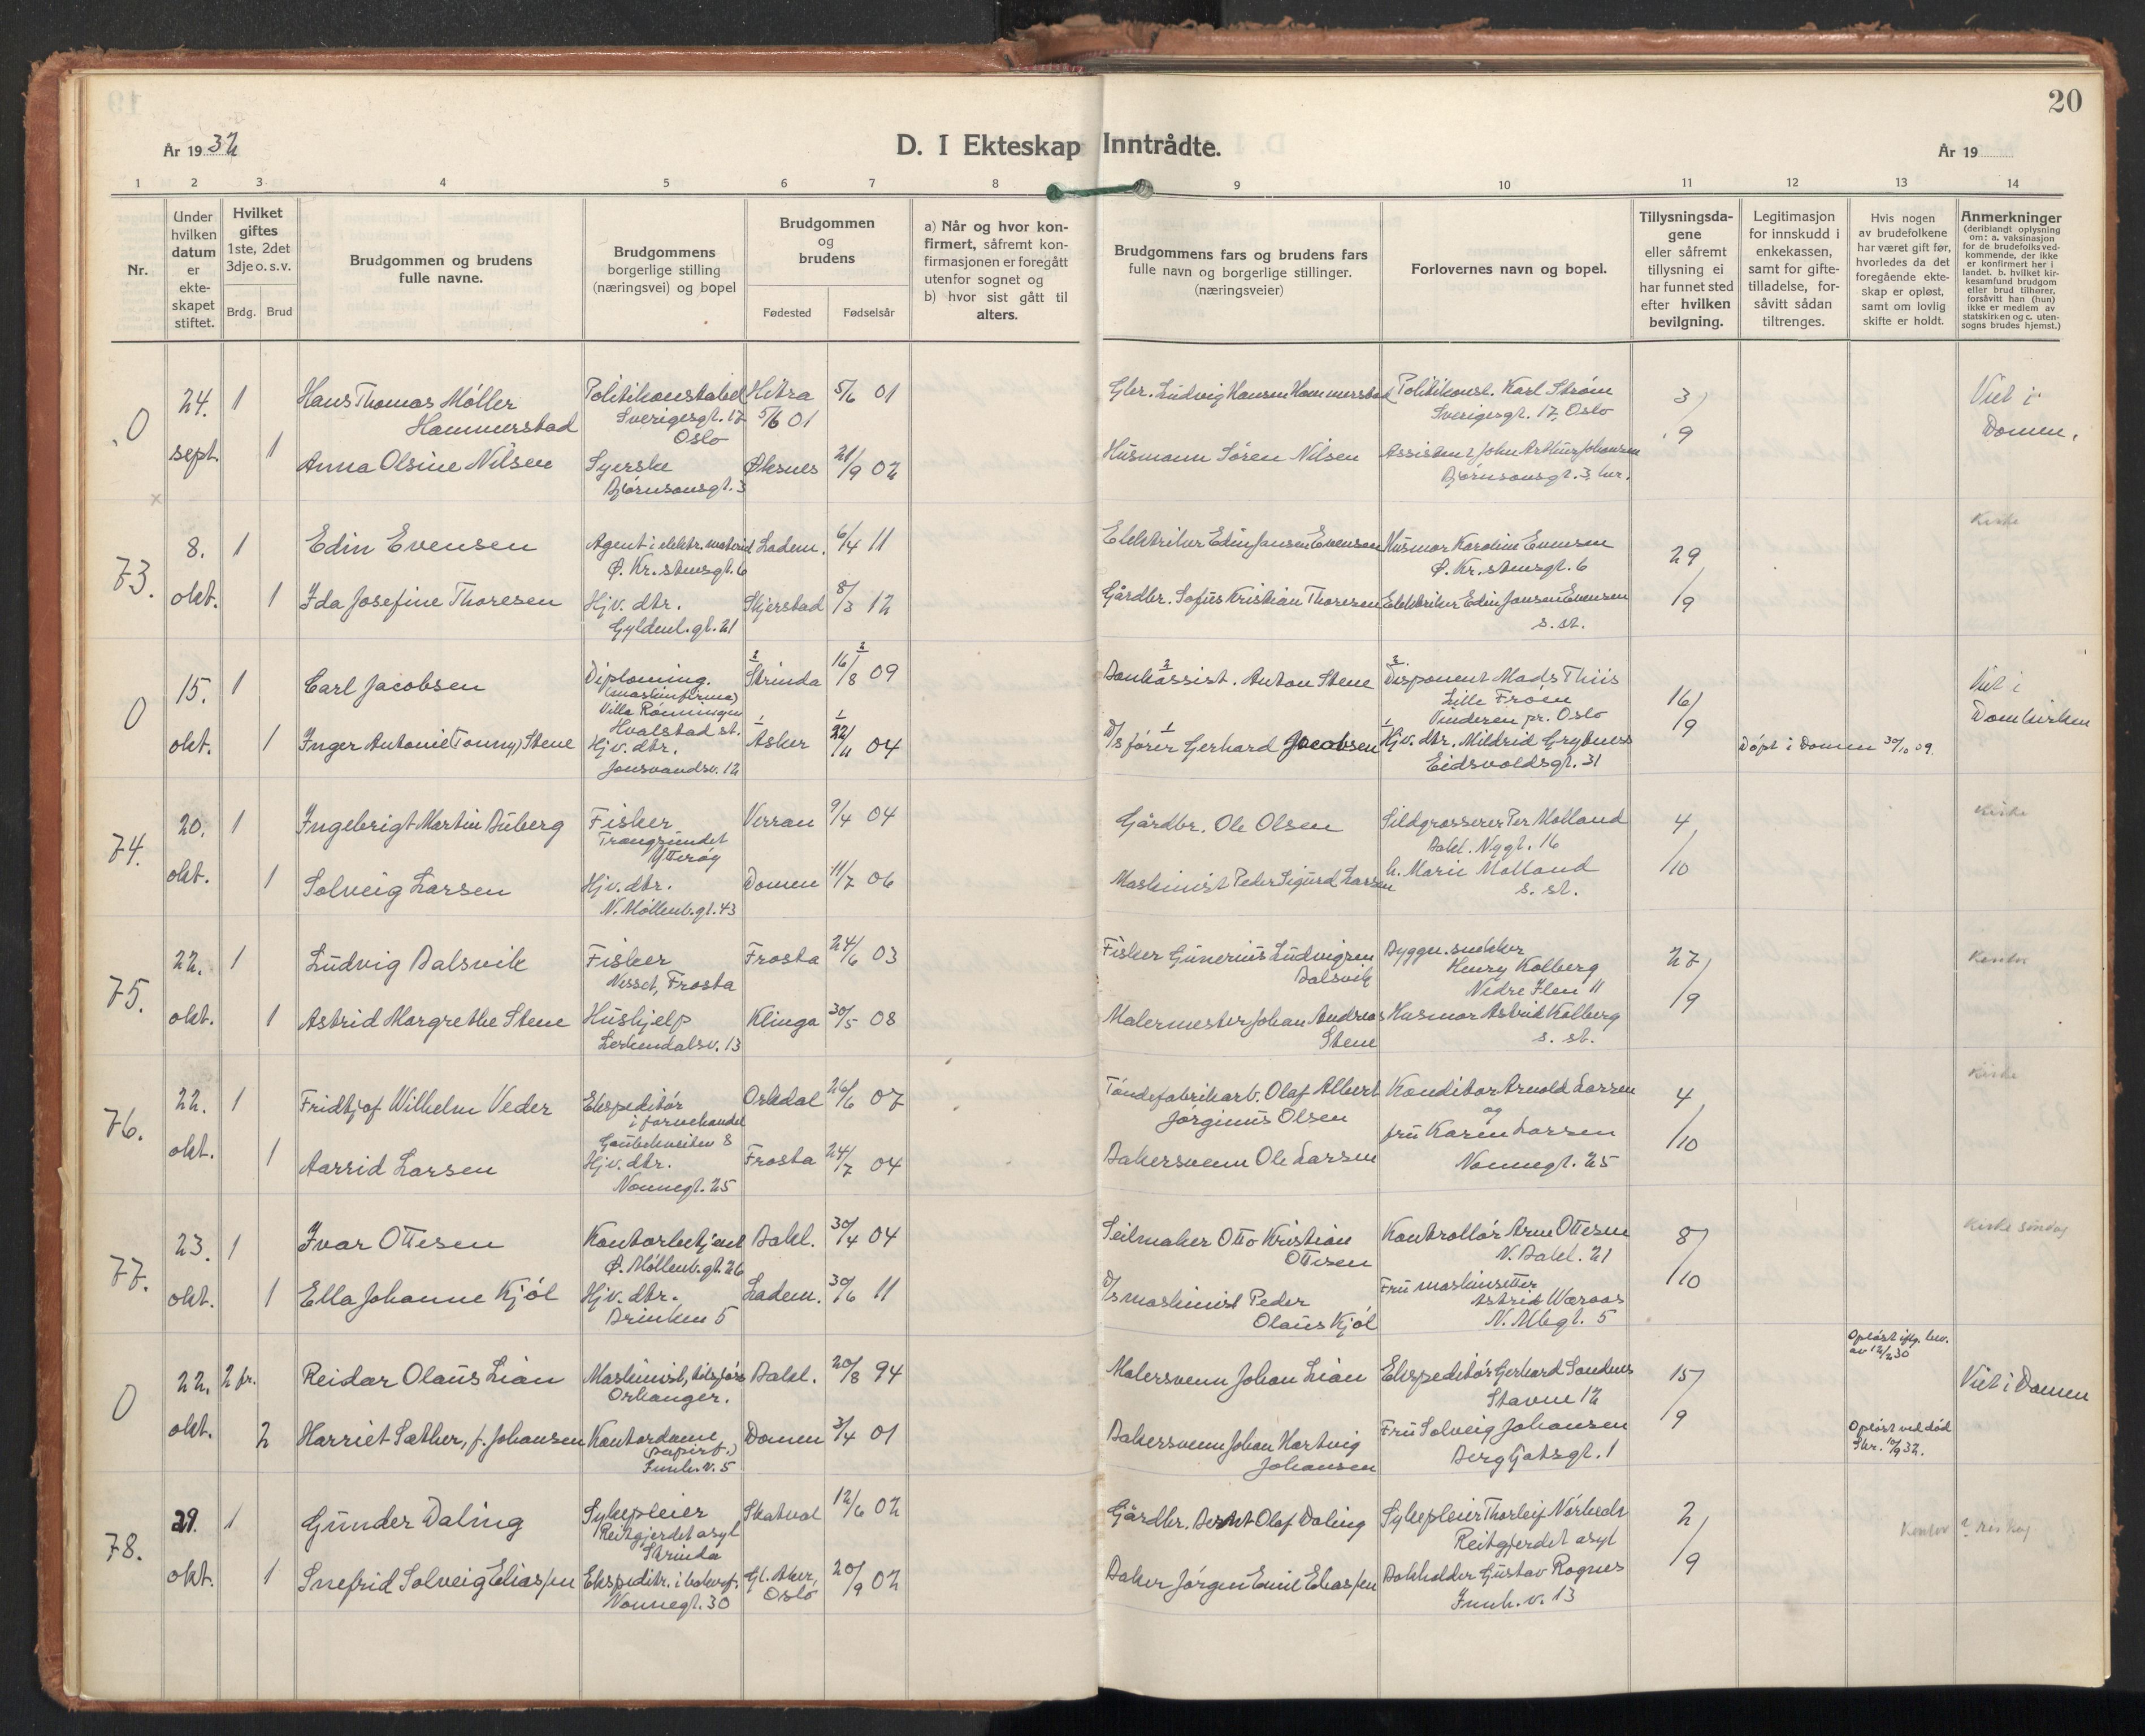 20
År 19 32
D. I Ekteskap Inntrådte.
År 19
1 2 3 4 5 6 7 8 9 10 11 12 13 14
Nr.
Under hvilken datum er ekteskapet stiftet.
Hvilket giftes 1ste, 2det 3dje o. s. v.
Brdg. Brud
Brudgommen og brudens fulle navne.
Brudgommens borgerlige stilling (næringsvei) og bopel
Brudgommen og brudens
Fødested Fødselsår
a) Når og hvor konfirmert, såfremt konfirmasjonen er foregått utenfor sognet og b) hvor sist gått til alters.
Brudgommens fars og brudens fars fulle navn og borgerlige stillinger. (næringsveier)
Forlovernes navn og bopel.
Tillysningsdagene eller såfremt tillysning ei har funnet sted efter hvilken bevilgning.
Legitimasjon for innskudd i enkekassen, samt for giftetilladelse, forsåvitt sådan tiltrenges.
Hvis nogen av brudefolkene har været gift før, hvorledes da det foregående ekteskap er opløst, samt om lovlig skifte er holdt.
Anmerkninger (deriblandt oplysning om: a. vaksinasjon for de brudefolks vedkommende, der ikke er konfirmert her i landet. b. hvilket kirkesamfund brudgom eller brud tilhører, forsåvitt han (hun) ikke er medlem av statskirken og c. utensogns brudes hjemst.)
0
24. 1 Hans Thomas Möller Hammerstad
Politikonstabel Sverigesgt. 17 Oslo
Hitra 5/6 01
5/6 01
Gbr. Ludvig Hansen Hammerstad
Politikonst. Karl Strøm Sverigesgt. 17, Oslo
3/9
Viet i Domen.
sept. 1 Anna Olsine Nilsen
Syerske Bjørnsonsgt. 3
Øksnes 21/9 02
Husmann Søren Nilsen
Assistent John Arthur Johansen Bjørnsonsgt. 3 hér.
73.
8. 1 Edin Evensen
Agent i elektr. materiel Ø. Kr.stensgt. 6
Ladem. 6/4 11
Elektriker Edin Jansen Evensen
Husmor Karoline Evensen Ø. Kr.stensgt. 6
29/9
Kirke
okt. 1 Ida Josefine Thoresen
Hjv. dtr. Gyldenl. gt. 21
Skjerstad 8/3 12
Gårdbr. Sofus Kristian Thoresen
Elektriker Edin Jansen Evensen s. st.
0
15. 1 Carl Jacobsen
Diploming. (maskinfirma) Villa Rønningen Hvalstad st.
2 Strinda 16/8 09
Bankassist. Anton Stene
Disponent Mads Thiis Lille Frøen Vinderen pr. Oslo
16/9
Viet i Domkirken
okt. 1 Inger Antonie (Tonny) Stene
Hjv. dtr. Jonsvandsv. 12
1 Asker 22/11 04
D/S fører Gerhard Jacobsen
Hjv. dtr. Mildrid Grytnes Eidsvoldsgt. 31
Døpt i Domen 30/10 09.
74.
20. 1 Ingebrigt Martin Buberg
Fisker Trongsundet Ytterøy
Verran 9/4 04
Gårdbr. Ole Olsen
Sildgrosserer Per Molland Bakl. Nygt. 16
4/10
Kirke
okt. 1 Solveig Larsen
Hjv. dtr. N. Møllenb. gt. 43
Domen 11/7 06
Maskinist Peder Sigurd Larsen
h. Marie Molland s. st.
75.
22. 1 Ludvig Balsvik
Fisker Nesset, Frosta
Frosta 24/6 03
Fisker Gunerius Ludvigsen Balsvik
Byggn. snekker Henry Kolberg Nedre Ilen 11
27/9
Kontor
okt. 1 Astrid Margrethe Stene
Hushjelp Lerkendalsv. 13
Klinga 30/5 08
Malermester Johan Andreas Stene
Husmor Astrid Kolberg s. st.
76.
22. 1 Fridtjof Wilhelm Veder
Ekspeditør i farvehandel Gaubekveiten 8
Orkdal 26/6 07
Tøndefabrikarb. Olaf Albert Jørginus Olsen
Konditor Arnold Larsen og
4/10
Kirke
okt. 1 Aarrid Larsen
Hjv. dtr. Nonnegt. 25
Frosta 24/7 04
Bakersvenn Ole Larsen
fru Karen Larsen Nonnegt. 25
77.
23. 1 Ivar Ottesen
Kontorbetjent Ø. Møllenb. gt. 26
Bakl. 30/4 04
Seilmaker Otto Kristian Ottesen
Kontrollør Arne Ottesen N. Bakl. 21
8/10
Kirke søndag
okt. 1 Ella Johanne Kjøl
Hjv. dtr. Brinken 5
Ladem. 30/6 11
D/S maskinist Peder Olaus Kjøl
Fru maskinsetter Astrid Wæraas N. Mbgt. 5
0
22. 2 fr. Reidar Olaus Lian
Maskinist, bilsjåfør Orkanger.
Bakl. 20/8 94
Malersvenn Johan Lian
Ekspeditør Gerhard Sandnes Stavne 12
15/9
Opløst iflg. bev. av 12/2 30
Viet i Domen
okt. 2 Harriet Sæther, f. Johansen
Kontordame (papirf.) Innh. v. 5
Domen 3/4 01
Bakersvenn Johan Hartvig Johansen
Fru Solveig Johansen Berg Gatsgt. 1
Opløst ved død Skr. 10/9 32.
78.
29. 1 Gunder Daling
Sykepleier Reitgjerdet asyl Strinda
Skatval 12/6 02
Gårdbr. Bernt Olaf Daling
Sykepleier Thorleif Nørbech Reitgjerdet asyl
2/9
Kontor
okt. 1 Snefrid Solveig Eliassen
Ekspeditr. i bakerf. Nonnegt. 30
Gl. Aker, Oslo 20/9 02
Baker Jørgen Emil Eliassen
Bokholder Gustav Rognes Innh. v. 13